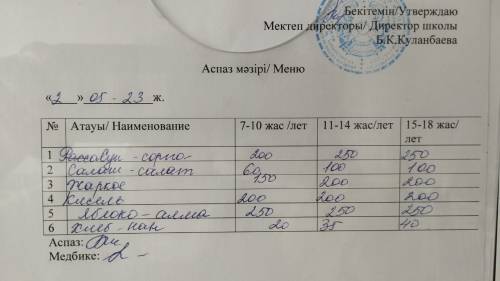 Бекітемін/Утверждаю
Мектеп директоры/ Директор школы
Б.К.Куланбаева
Аспаз мәзірі/ Меню
«2» 05 - 23 ж.
№ Атауы/ Наименование 7-10 жас /лет 11-14 жас/лет 15-18 жас/ лет
1 - сорпо 200 250 250
2 Салат - салат 60 100 100
3 Жаркое 150 200 200
4 Кисель 200 200 200
5 Яблоко - алма 250 250 250
6 Хлеб - нан 20 35 40
Аспаз:
Медбике: